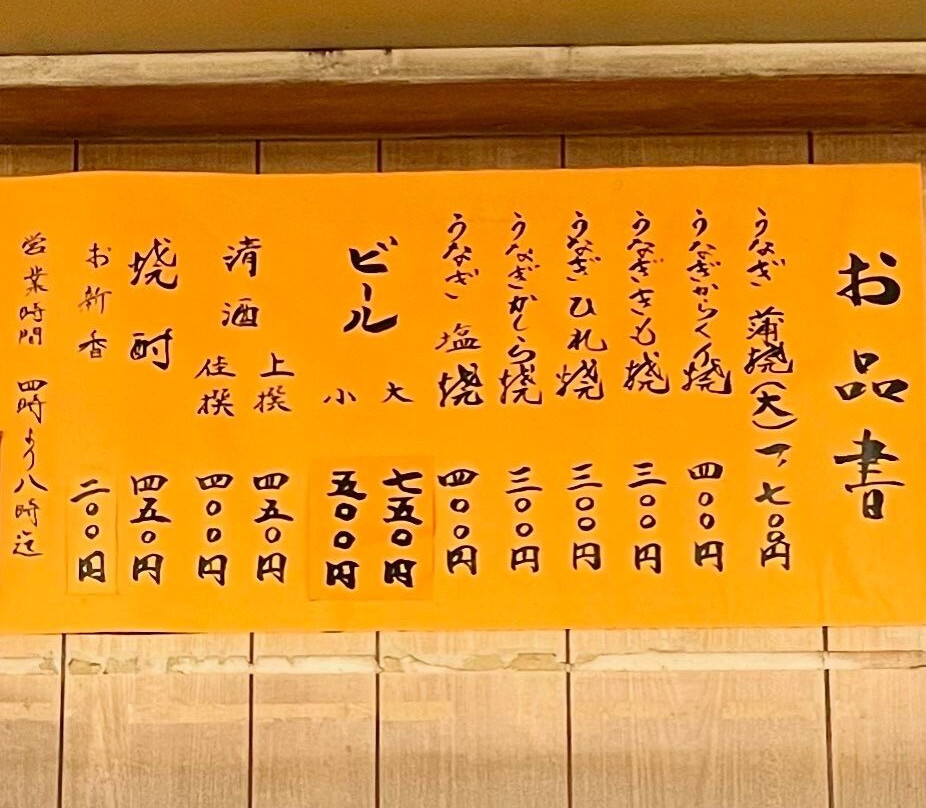 お品書
うなぎ 蒲焼(大) 一、七〇〇円
うなぎからくり焼 四〇〇円
うなぎきも焼 三〇〇円
うなぎひれ焼 三〇〇円
うなぎかしら焼 三〇〇円
うなぎ 塩焼 四〇〇円
ビール 大 七五〇円
小 五〇〇円
清酒 上撰 四五〇円
佳撰 四〇〇円
焼酎 四五〇円
お新香 二〇〇円
営業時間 四時より八時迄